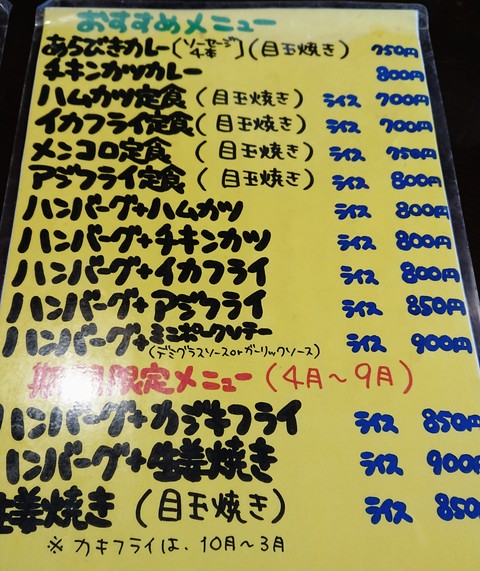 おすすめメニュー
あらびきカレー(ソーセージ4本)(目玉焼き) 750円
チキンカツカレー 800円
ハムカツ定食(目玉焼き) ライス 700円
イカフライ定食(目玉焼き) ライス 700円
メンコロ定食(目玉焼き) ライス 750円
アジフライ定食(目玉焼き) ライス 800円
ハンバーグ+ハムカツ ライス 800円
ハンバーグ+チキンカツ ライス 800円
ハンバーグ+イカフライ ライス 800円
ハンバーグ+アジフライ ライス 850円
ハンバーグ+ミニポークソテー ライス 900円
(デミグラスソースorガーリックソース)
期間限定メニュー(4月~9月)
ハンバーグ+カジキフライ ライス 850円
ハンバーグ+生姜焼き ライス 900円
生姜焼き(目玉焼き) ライス 850
※カキフライは、10月~3月